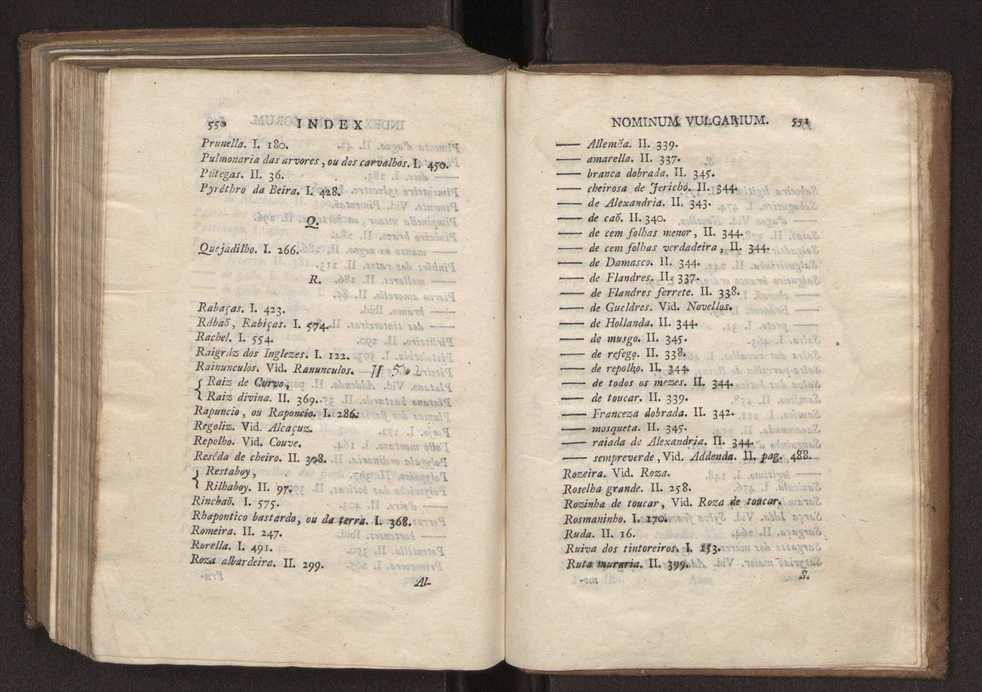 550 INDEX
Prunella. I. 180.
Pulmonaria das arvores, ou dos carvalhos. I. 450.
Pútegas. II. 36.
Pyréthro da Beira. I. 428.
Q.
Quejadilho. I. 266.
R.
Rabaças. I. 423.
Rábaõ, Rabiças. I. 574.
Rachel. I. 554.
Raigráz dos Inglezes. I. 122.
Rainunculos. Vid. Ranunculos.
{ Raiz de Corvo,
{ Raiz divina. II. 369.
Rapuncio, ou Raponcio. I. 286.
Regoliz. Vid. Alcaçuz.
Repolho. Vid. Couve.
Reséda de cheiro. II. 398.
{ Restaboy,
{ Rilhaboy. II. 97.
Rinchaõ. I. 575.
Rhapontico bastardo, ou da terra. I. 368.
Romeira. II. 247.
Rorella. I. 491.
Roza albardeira. II. 299.
Al-
NOMINUM VULGARIUM. 551
—— Allemãa. II. 339.
—— amarella. II. 337.
—— branca dobrada. II. 345.
—— cheirosa de Jerichó. II. 344.
—— de Alexandria. II. 343.
—— de caõ. II. 340.
—— de cem folhas menor, II. 344.
—— de cem folhas verdadeira, II. 344.
—— de Damasco. II. 344.
—— de Flandres. II. 337.
—— de Flandres ferrete. II. 338.
—— de Gueldres. Vid. Novellos.
—— de Hollanda. II. 344.
—— de musgo. II. 345.
—— de refego. II. 338.
—— de repolho. II. 344.
—— de todos os mezes. II. 344.
—— de toucar. II. 339.
—— Franceza dobrada. II. 342.
—— mosqueta. II. 345.
—— raiada de Alexandria. II. 344.
—— sempreverde, Vid. Addenda. II. pag. 488.
Rozeira. Vid. Roza.
Roselha grande. II. 258.
Rozinha de toucar, Vid. Roza de toucar.
Rosmaninho. I. 170.
Ruda. II. 16.
Ruiva dos tintoreiros. I. 153.
Ruta muraria. II. 399.
S.